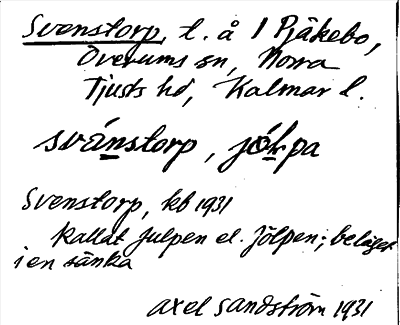 Svenstorp, t. å 1 Pjäkebo,
Överums sn, Norra
Tjusts hd, Kalmar l.
svä́nstorp, jö́lpa
Svenstorp, kb 1931
kallat Julpen el. Jölpen; beläget
i en sänka
Axel Sandström 1931